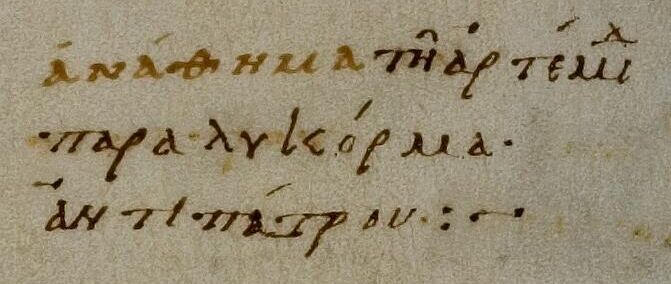 ἀνάθημα τῆ ἀρτέμιδ
·παρα λυκόρμα·
ἀντιπάτρου·:–·